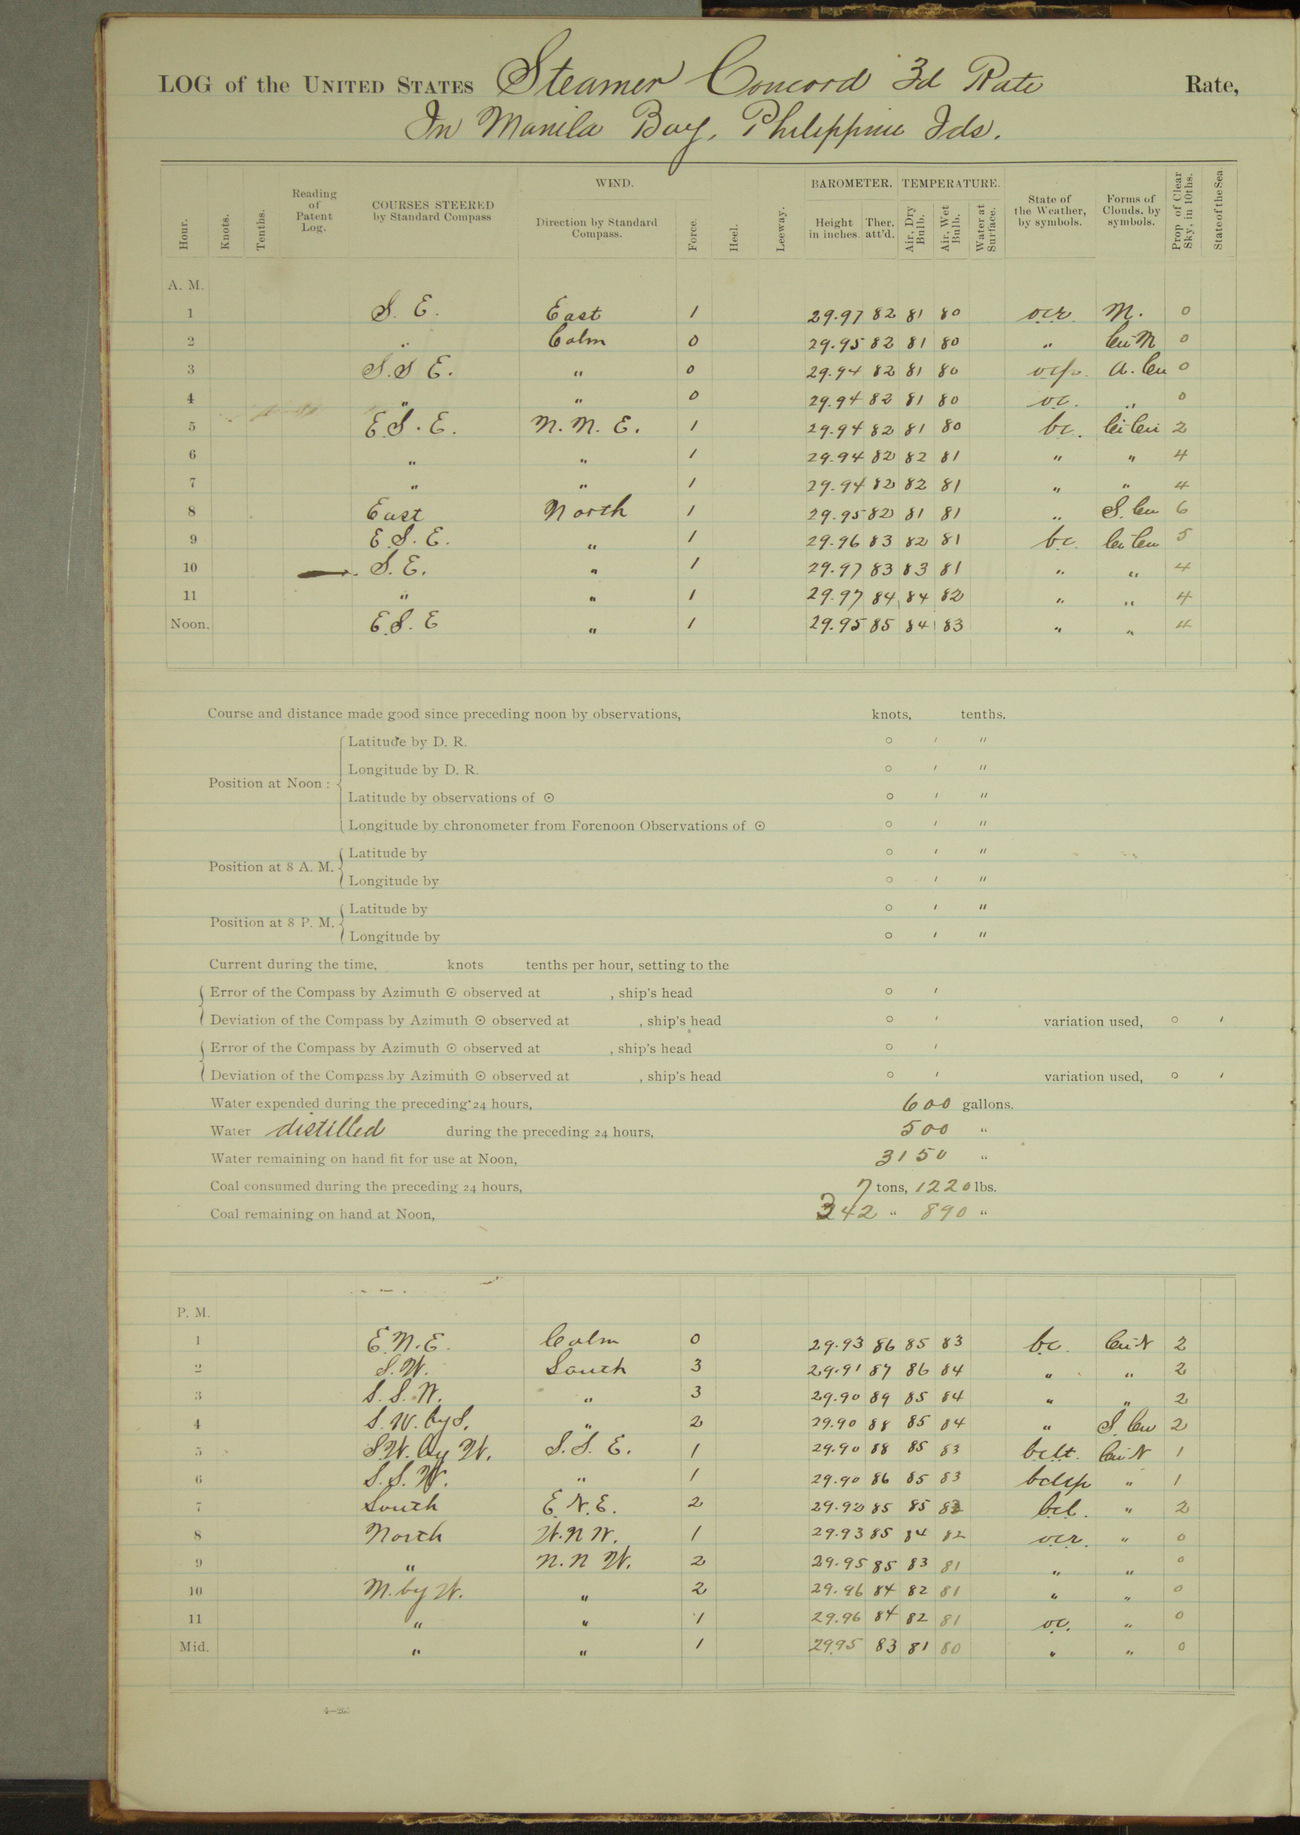 LOG of the UNITED STATES Steamer Concord 3d Rate Rate,
In Manila Bay, Philippine Ids.
Hour. Knots. Tenths. Reading of Patent Log. COURSES STEERED by Standard Compass WIND. Direction by Standard Compass. Force. Heel. Leeway. BAROMETER. Height in inches. Ther. att'd. TEMPERATURE. Air, Dry Bulb. Air, Wet Bulb. Water at Surface. State of the Weather, by symbols. Forms of Clouds, by symbols. Prop. of Clear Sky, in 10ths. State of the Sea.
A. M.
1 S. E. East 1 29.97 82 81 80 ocr. N. 0
2 " Calm 0 29.95 82 81 80 " Cu-N 0
3 S.S E. " 0 29.94 82 81 80 ocp. A. Cu 0
4 " " 0 29.94 82 81 80 oc. " 0
5 E.S.E. N.N.E. 1 29.94 82 81 80 bc. Ci Cu 2
6 " " 1 29.94 82 82 81 " " 4
7 " " 1 29.94 82 82 81 " " 4
8 East North 1 29.95 82 81 81 " S. Cu 6
9 E.S.E. " 1 29.96 83 82 81 bc. Ci Cu 5
10 S.E. " 1 29.97 83 83 81 " " 4
11 " " 1 29.97 84 84 82 " " 4
Noon. E.S.E " 1 29.95 85 84 83 " " 4
Course and distance made good since preceding noon by observations, knots, tenths.
Position at Noon :
Latitude by D. R. ° ′ ″
Longitude by D. R. ° ′ ″
Latitude by observations of ☉ ° ′ ″
Longitude by chronometer from Forenoon Observations of ☉ ° ′ ″
Position at 8 A. M.
Latitude by ° ′ ″
Longitude by ° ′ ″
Position at 8 P. M.
Latitude by ° ′ ″
Longitude by ° ′ ″
Current during the time, knots tenths per hour, setting to the
Error of the Compass by Azimuth ☉ observed at , ship's head ° ′
Deviation of the Compass by Azimuth ☉ observed at , ship's head ° ′ variation used, ° ′
Error of the Compass by Azimuth ☉ observed at , ship's head ° ′
Deviation of the Compass by Azimuth ☉ observed at , ship's head ° ′ variation used, ° ′
Water expended during the preceding 24 hours, 600 gallons.
Water distilled during the preceding 24 hours, 500 "
Water remaining on hand fit for use at Noon, 3150 "
Coal consumed during the preceding 24 hours, 7 tons, 1220 lbs.
Coal remaining on hand at Noon, 342 " 890 "
P. M.
1 E.N.E. Calm 0 29.93 86 85 83 bc. Cu-N 2
2 S.W. South 3 29.91 87 86 84 " " 2
3 S.S.W. " 3 29.90 89 85 84 " " 2
4 S.W. by S. " 2 29.90 88 85 84 " S. Cu 2
5 S.W. by W. S.S.E. 1 29.90 88 85 83 bclt. Cu-N 1
6 S.S.W. " 1 29.90 86 85 83 bcltp " 1
7 South E.N.E. 2 29.92 85 85 83 bcl. " 2
8 North W.N.W. 1 29.93 85 84 82 ocr. " 0
9 " N.N.W. 2 29.95 85 83 81 " " 0
10 N. by W. " 2 29.96 84 82 81 " " 0
11 " " 1 29.96 84 82 81 oc. " 0
Mid. " " 1 29.95 83 81 80 " " 0